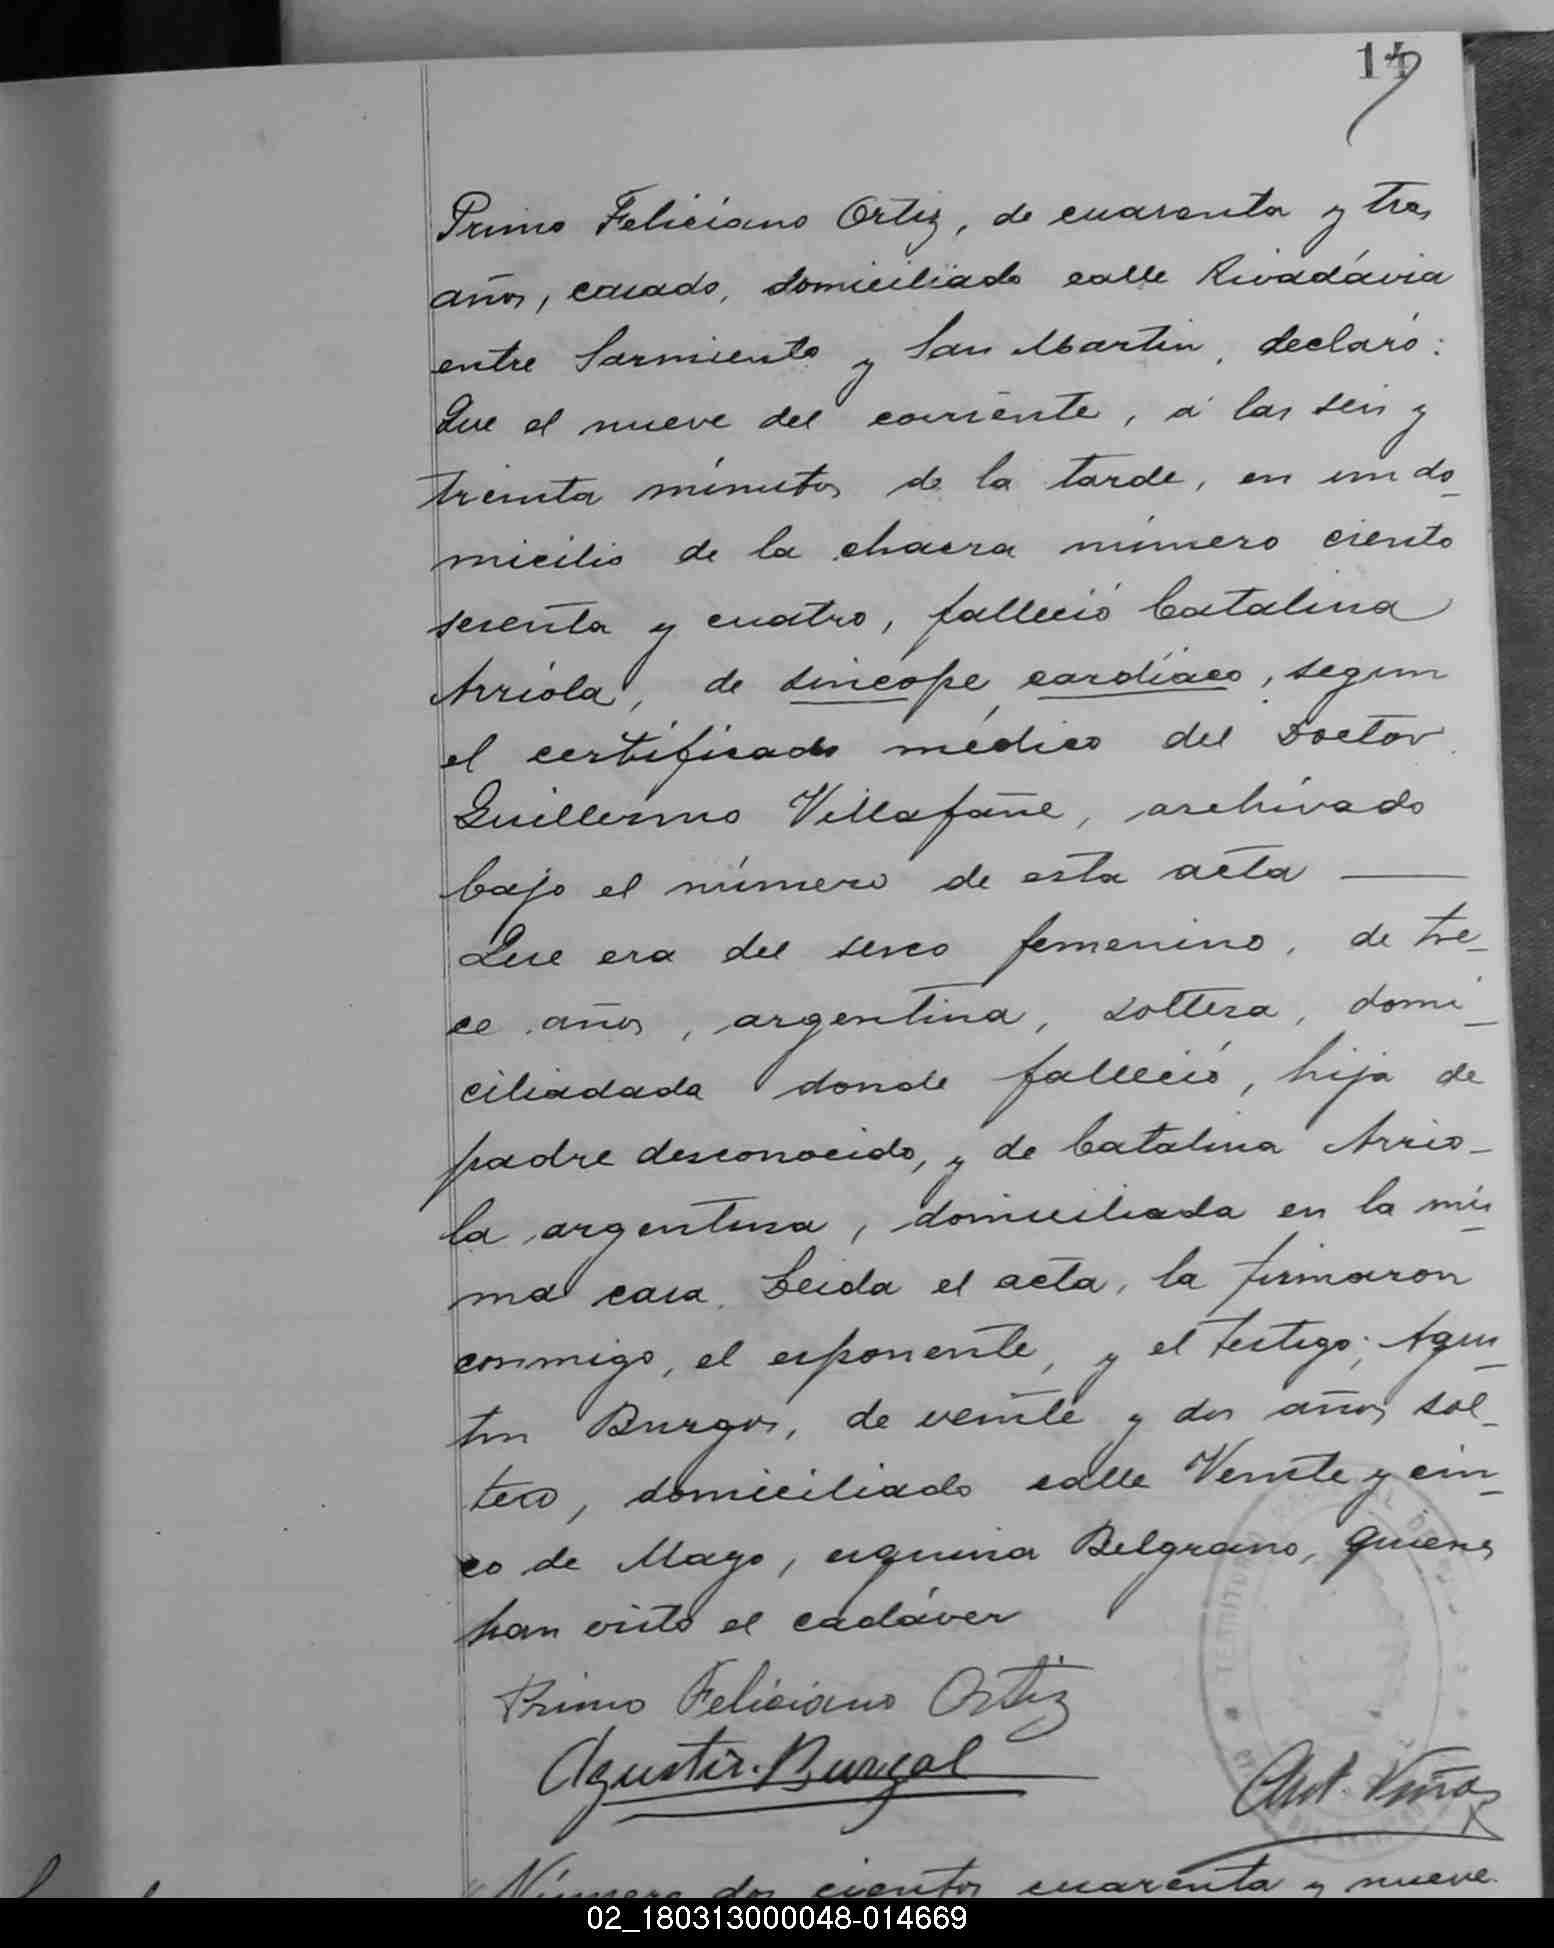 14
Primo Feliciano Ortiz, de cuarenta y tres
años, casado, domiciliado calle Rivadávia
entre Sarmiento y San Martin, declaró:
Que el nueve del corriente, á las seis y
treinta minutos de la tarde, en un do-
micilio de la chacra número ciento
sesenta y cuatro, falleció Catalina
Arriola, de sincope cardíaco, segun
el certificado médico del Doctor
Guillermo Villafañe, archivado
bajo el número de esta acta —
Que era del sexo femenino, de tre-
ce años, argentina, soltera, domi-
ciliadada donde falleció, hija de
padre desconocido, y de Catalina Arrio-
la argentina, domiciliada en la mis-
ma casa. Leida el acta, la firmaron
conmigo, el exponente, y el testigo; Agus-
tin Burgos, de veinte y dos años, sol-
tero, domiciliado calle Veinte y cin-
co de Mayo, esquina Belgrano, quienes
han visto el cadáver
Primo Feliciano Ortiz
Agustin Burgos
TERRITORIO
Número dos cientos cuarenta y nueve
02_180313000048-014669